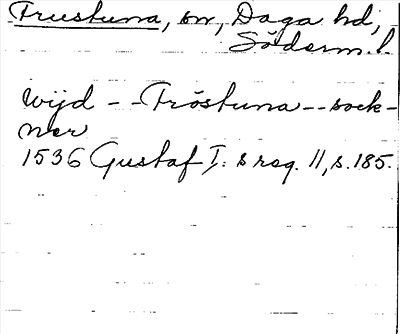 Frustuna, sn, Daga hd,
Söderm. l.
wijd -- Fröstuna -- sock-
ner
1536 Gustaf I: s reg. 11, s. 185.